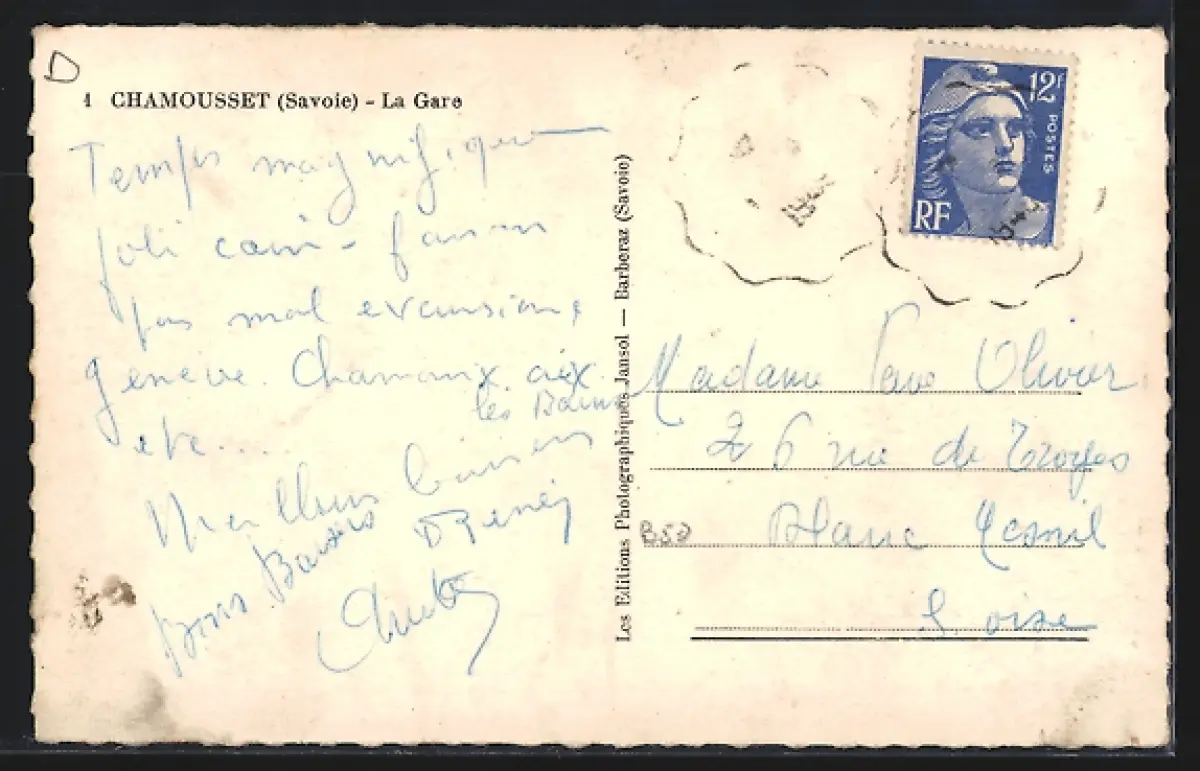 D
1 CHAMOUSSET (Savoie) - La Gare
Temps magnifique
joli coin -
pas mal excursions
genève. Chamonix. aix
les Bains
etc....
Meilleurs baisers
Bons Baisers
Les Editions Photographiques Jansol — Barberaz (Savoie)
12F
POSTES
RF
Madame Olivier
26 rue de Troyes
B50
Blanc Mesnil
S. oise